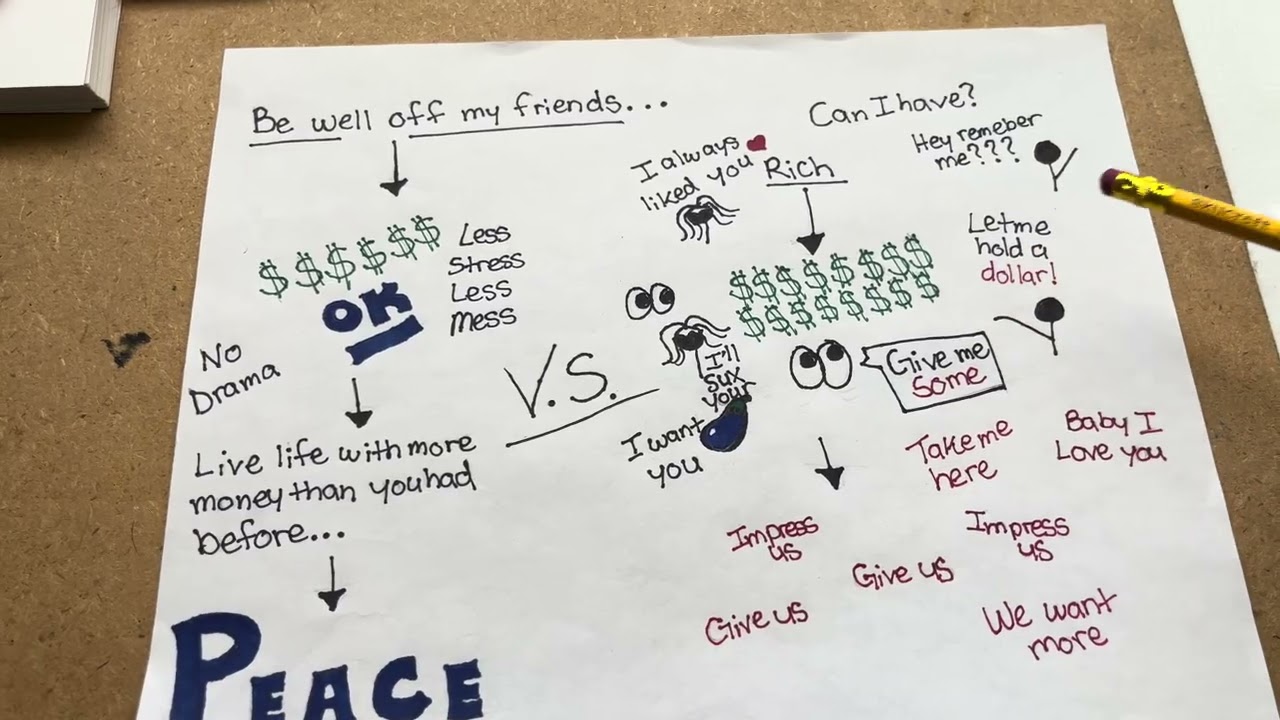 Be well off my friends...
$$$$$$
OK
Less
Stress
Less
Mess
No
Drama
Live life with more
money than you had
before...
PEACE
V.S.
Can I have?
I always
liked you
Rich
Hey remeber
me???
$$$$$$$$
$$$$$$$$
Let me
hold a
dollar!
I'll
sux
your
I want
you
Give me
some
Take me
here
Baby I
Love you
Impress
us
Impress
us
Give us
Give us
We want
more